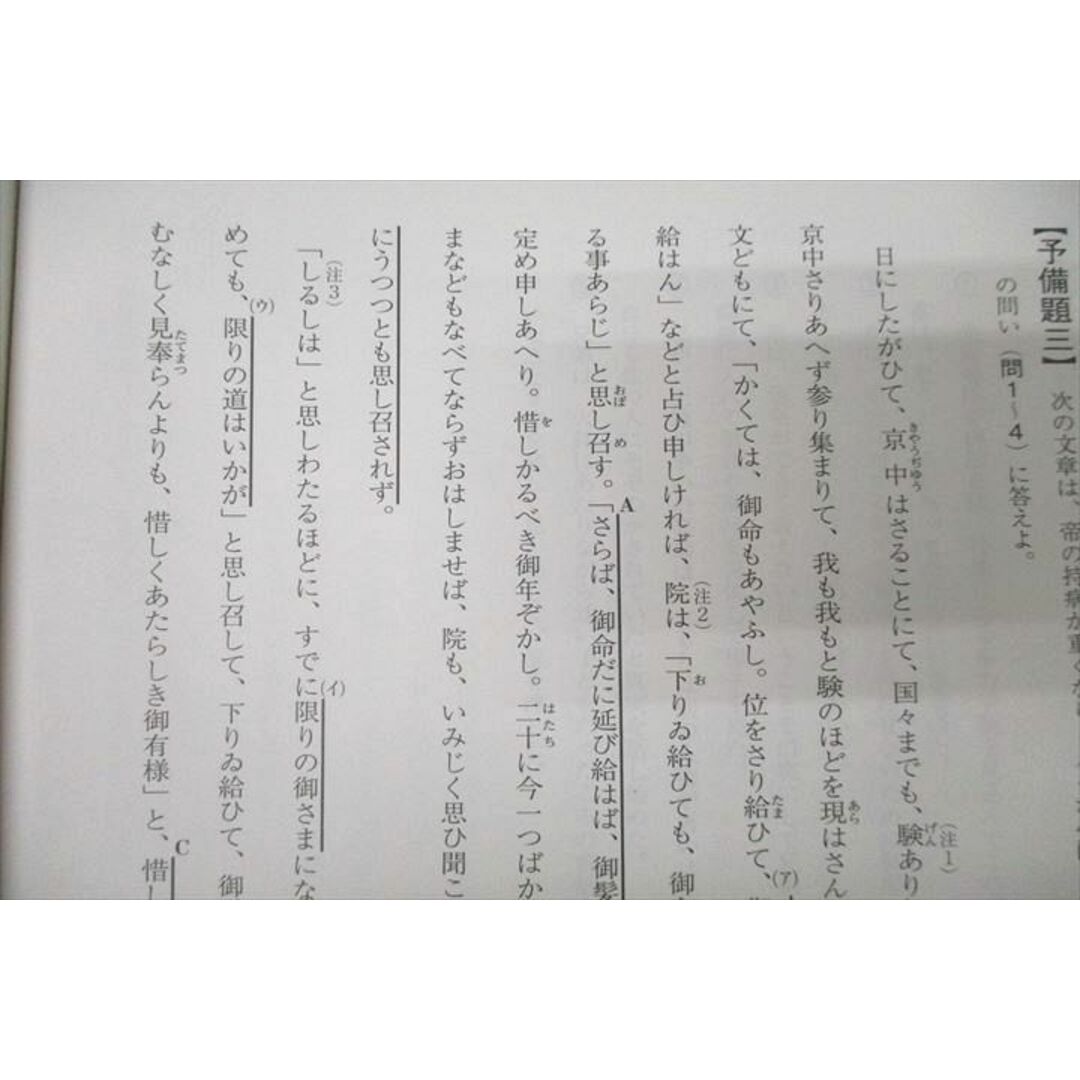 【予備題三】 次の文章は、帝の持病が重く
の問い(問1〜4)に答えよ。
日にしたがひて、京中はさることにて、国々までも、験あり
京中さりあへず参り集まりて、我も我もと験のほどを現はさん
文どもにて、「かくては、御命もあやふし。位をさり給ひて、
給はん」などと占ひ申しければ、院は、「下りゐ給ひても、御
る事あらじ」と思し召す。「さらば、御命だに延び給はば、御髪
定め申しあへり。惜しかるべき御年ぞかし。二十に今一つばか
まなどもなべてならずおはしませば、院も、いみじく思ひ聞こ
にうつつとも思し召されず。
「しるしは」と思しわたるほどに、すでに限りの御さまにな
めても、限りの道はいかが」と思し召して、下りゐ給ひて、御
むなしく見奉らんよりも、惜しくあたらしき御有様」と、惜し
きやうぢゆう
(注1)
げん
あら
たま
(ア)
(注2)
お
おぼ
め
A
を
はたち
(注3)
(イ)
(ウ)
たてまつ
C